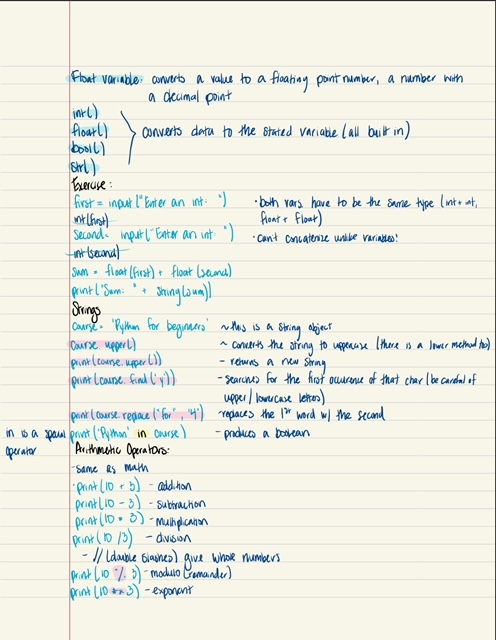 Float variable converts a value to a floating point number, a number with
a decimal point
int()
float()
bool()
str()
converts data to the stated variable (all built in)
Exercise:
first = input("Enter an int: ")
· both vars have to be the same type (int + int,
float + float)
int(first)
Second = input("Enter an int: ")
· Can't concatenize unlike variables!
int(second)
sum = float(first) + float(second)
print("Sum: " + string(sum))
Strings
Course = 'Python for beginners' ~this is a string object
Course.upper() ~ converts the string to uppercase (there is a lower method too)
print(course.upper()) - returns a new string
print(course.find('y')) - searches for the first occurence of that char (be careful of
upper/lowercase letters)
print(course.replace("for", "4") ~replaces the 1st word w/ the second
in is a special operator
print('Python' in course) - produces a boolean
Arithmetic Operators:
-same as math
·print(10 + 3) - addition
print(10 - 3) - subtraction
print(10 * 3) - multiplication
print(10 / 3) - division
- // (double slashes) give whole numbers
print(10 % 3) - modulo (remainder)
print(10 ** 3) - exponent